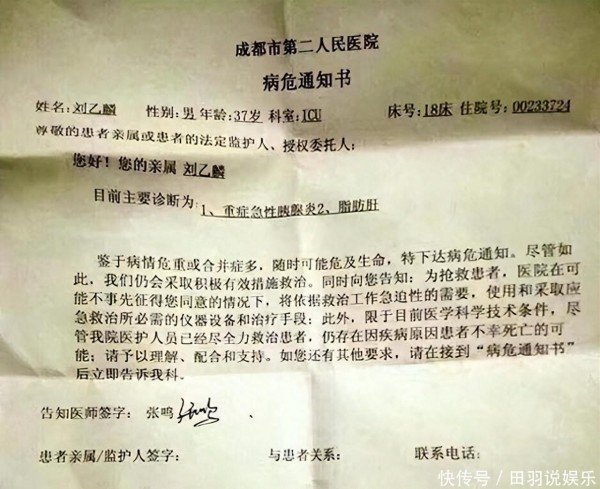 成都市第二人民医院
病危通知书
姓名:刘乙麟 性别:男 年龄:37岁 科室:ICU 床号:18床 住院号:00233724
尊敬的患者亲属或患者的法定监护人、授权委托人:
您好!您的亲属 刘乙麟
目前主要诊断为:1、重症急性胰腺炎2、脂肪肝
鉴于病情危重或合并症多,随时可能危及生命,特下达病危通知。尽管如
此,我们仍会采取积极有效措施救治。同时向您告知:为抢救患者,医院在可
能不事先征得您同意的情况下,将依据救治工作急迫性的需要,使用和采取应
急救治所必需的仪器设备和治疗手段;此外,限于目前医学科学技术条件,尽
管我院医护人员已经尽全力救治患者,仍存在因疾病原因患者不幸死亡的可
能;请予以理解、配合和支持。如您还有其他要求,请在接到“病危通知书”
后立即告诉我科。
告知医师签字:张鸣 张鸣
患者亲属/监护人签字: 与患者关系: 联系电话:
快传号/田羽说娱乐